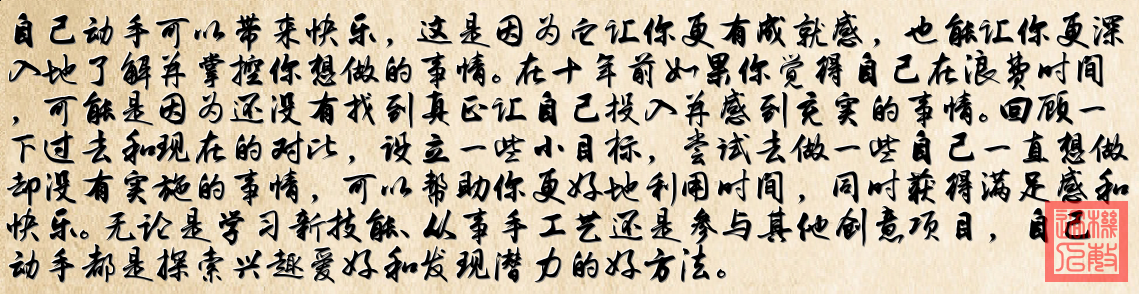 自己动手可以带来快乐，这是因为它让你更有成就感，也能让你更深
入地了解并掌控你想做的事情。在十年前如果你觉得自己在浪费时间
，可能是因为还没有找到真正让自己投入并感到充实的事情。回顾一
下过去和现在的对比，设立一些小目标，尝试去做一些自己一直想做
却没有实施的事情，可以帮助你更好地利用时间，同时获得满足感和
快乐。无论是学习新技能、从事手工艺还是参与其他创意项目，自己
动手都是探索兴趣爱好和发现潜力的好方法。